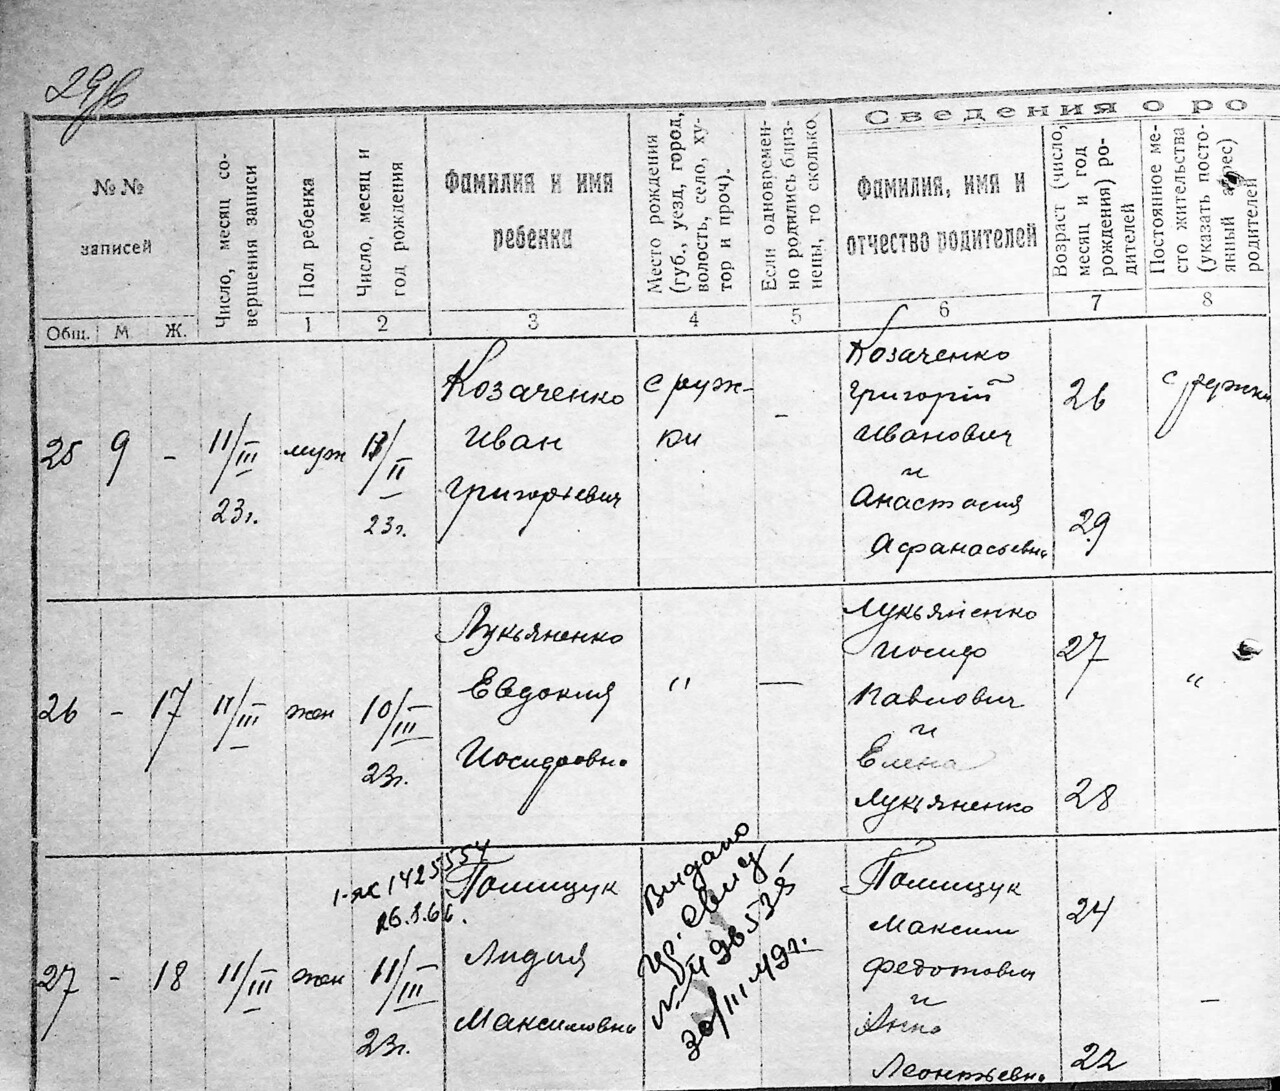 29/в
Сведения о ро
№ №
записей
Число, месяц со-
вершения записи
Пол ребенка
Число, месяц и
год рождения
Фамилия и имя
ребенка
Место рождения
(губ., уезд, город,
волость, село, ху-
тор и проч).
Если одновремен-
но родились близ-
нецы, то сколько
Фамилия, имя и
отчество родителей
Возраст (число,
месяц и год
рождения) ро-
дителей
Постоянное ме-
сто жительства
(указать посто-
янный адрес)
родителей
Общ. М. Ж. 1 2 3 4 5 6 7 8
25 9 -
11/III
23г.
муж
13/II
23г.
Козаченко
Иван
Григорьевич
с руж-
ки
-
Козаченко
Григорій
Иванович
и
Анастасия
Афанасьевна
26
29
с ружки
26 - 17
11/III
жен
10/III
23г.
Лукьяненко
Евдокия
Иосифовна
"
—
Лукьяненко
Иосиф
Павлович
и
Елена
Лукьяненко
27
28
"
27 - 18
11/III
жен
I-яс 1425554
26.8.66.
11/III
23г.
Полищук
Лидия
Максимовна
Выдано
№
30/III 49г.
Полищук
Максим
Федотович
и
Анна
Леонтьевна
24
22
-